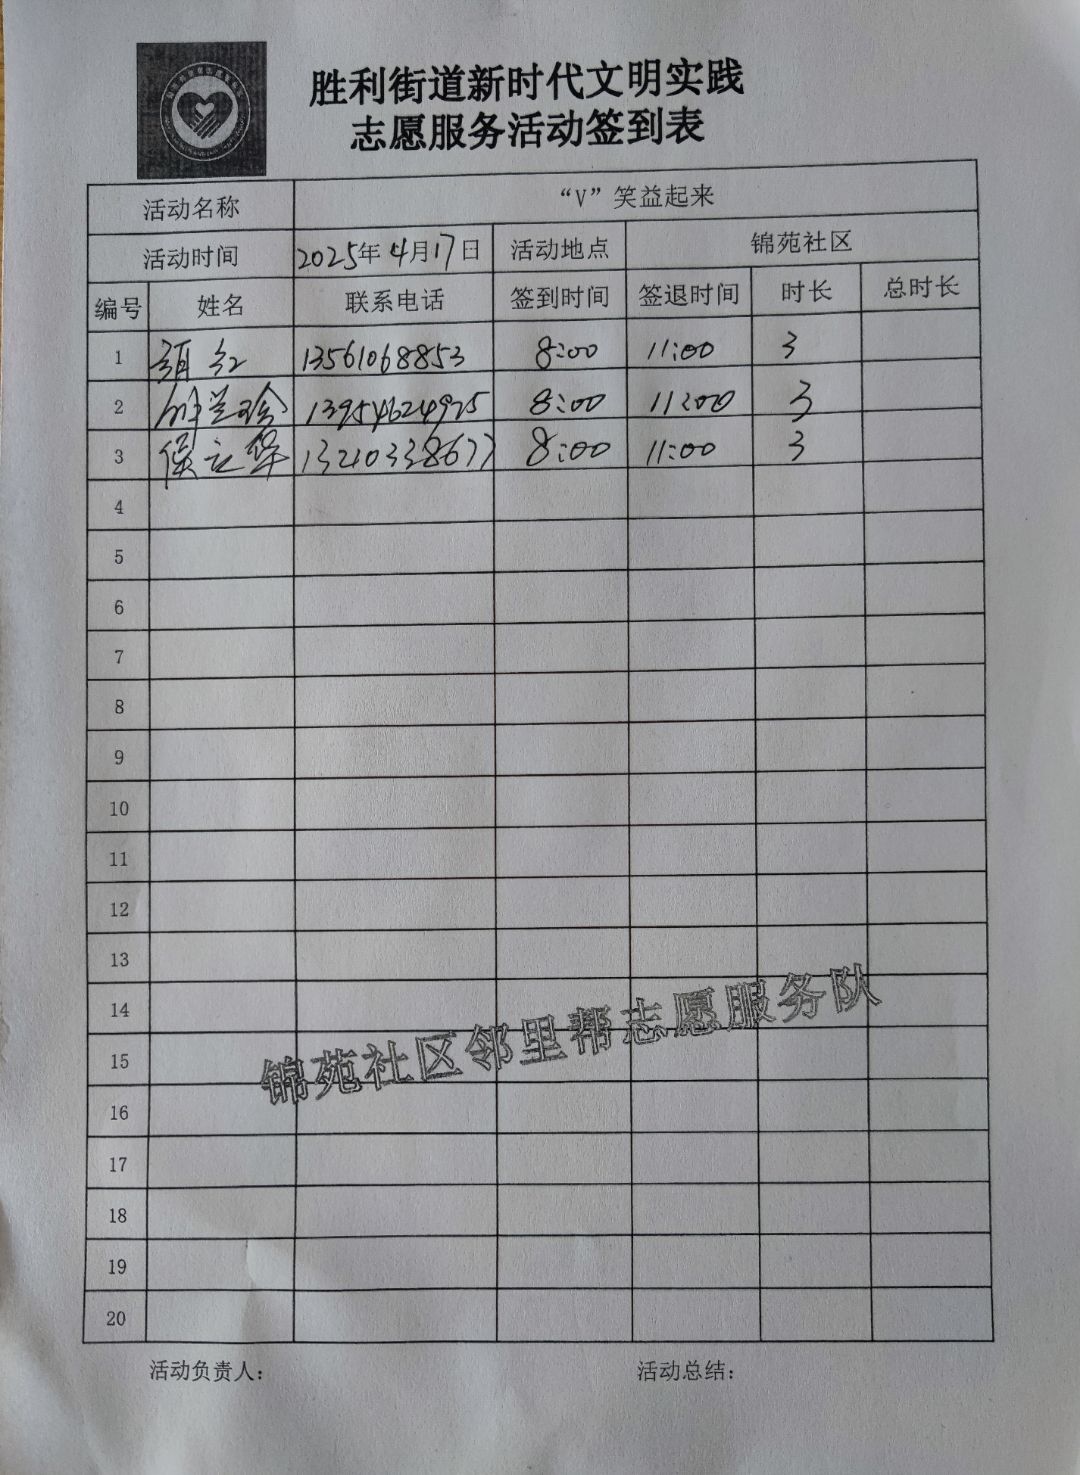 胜利街道新时代文明实践
志愿服务活动签到表
活动名称 “V”笑益起来
活动时间 2025年4月17日 活动地点 锦苑社区
编号 姓名 联系电话 签到时间 签退时间 时长 总时长
1 红 13561068853 8:00 11:00 3
2 兰珍 13954624925 8:00 11:00 3
3 侯立华 13210338677 8:00 11:00 3
4
5
6
7
8
9
10
11
12
13
14
锦苑社区邻里帮志愿服务队
15
16
17
18
19
20
活动负责人： 活动总结：